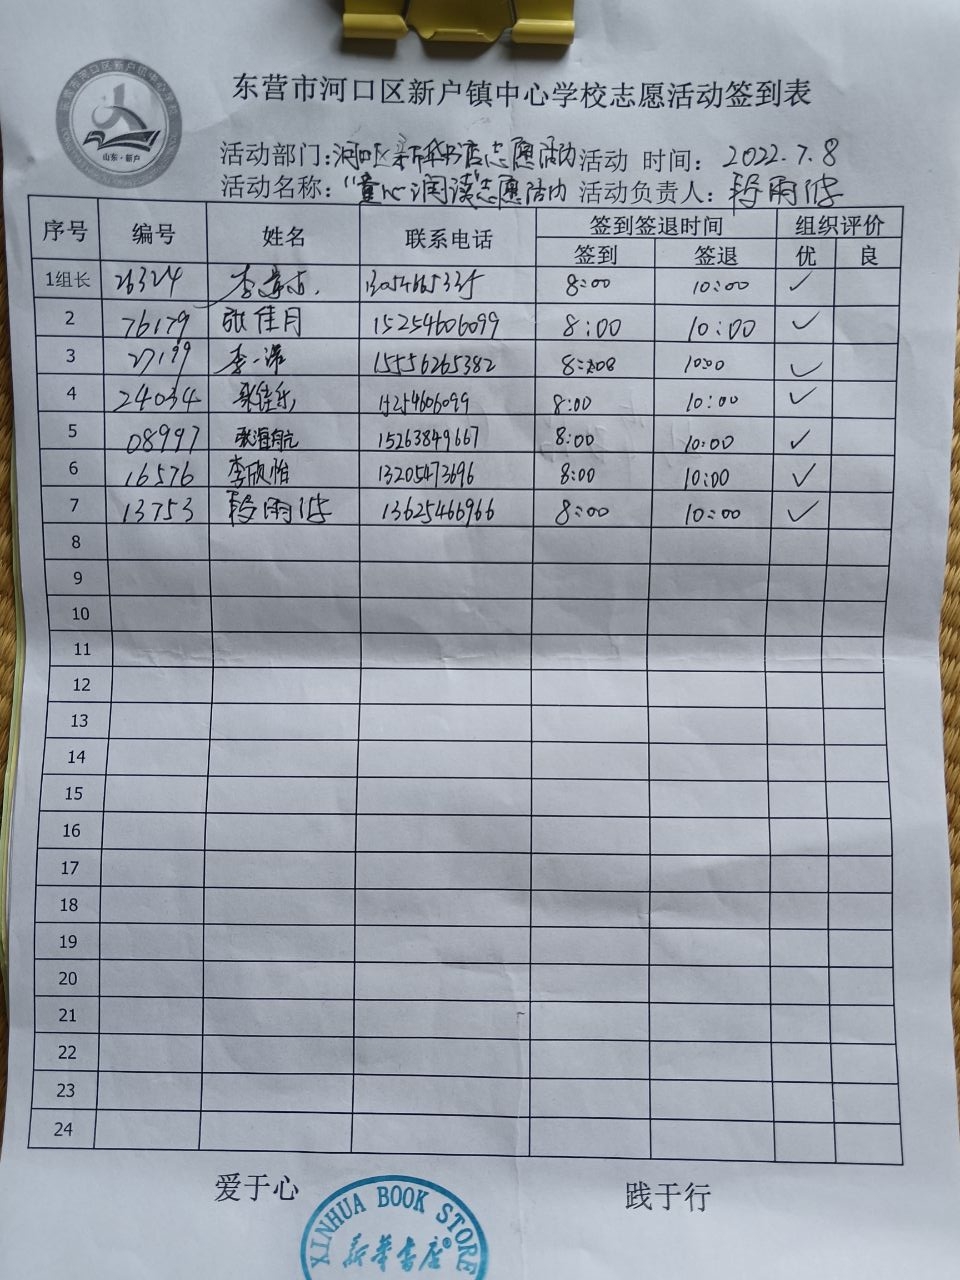 东营市河口区新户镇中心学校志愿活动签到表
山东·新户
活动部门：河口区新华书店志愿活动 活动 时间： 2022.7.8
活动名称：“童心润读”志愿活动 活动负责人：段雨
序号 编号 姓名 联系电话 签到签退时间 组织评价
签到 签退 优 良
1组长 26324 李 8:00 10:00 ✓
2 76179 张佳月 15254606099 8:00 10:00 ✓
3 27199 李一诺 15556265382 8: 10:00 ✓
4 24034 张佳乐 15254606099 8:00 10:00 ✓
5 08997 张海航 15263849667 8:00 10:00 ✓
6 16576 李欣怡 13205473696 8:00 10:00 ✓
7 13753 段雨 13625466966 8:00 10:00 ✓
8
9
10
11
12
13
14
15
16
17
18
19
20
21
22
23
24
爱于心 践于行
XINHUA BOOK STORE
新华书店®